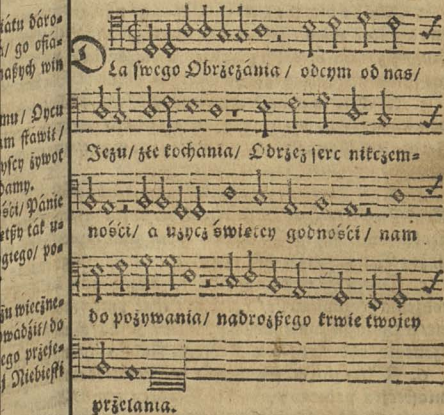 iátu dáro-
á/ go ofiá-
náßych win
mu/ Oycu
am stáwił/
yscy żywot
damy.
ści/ Pánie
etßy ták u-
giego/ po-
żu wieczne-
wádźił/ do
ego przeje-
j Niebieſki
DLa ſwego Obrzezánia/ odeym od nas/
Jezu/ złe kochania/ Obrzeż ſerc nikczem-
ności/ a użycz świetey godności/ nam
do pożywania/ nadrożßego krwie twojey
przelania.